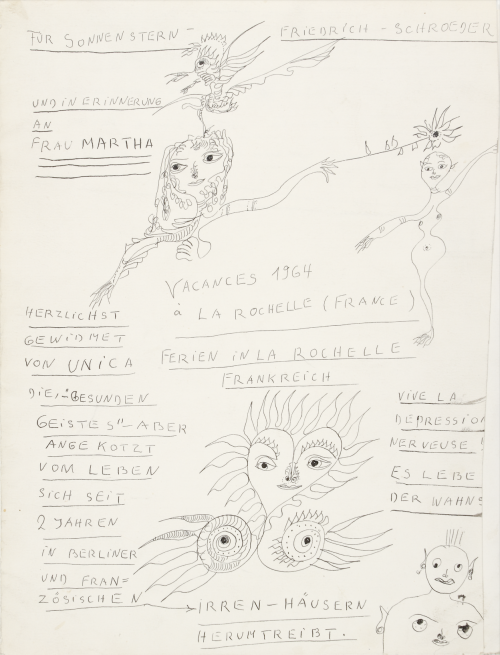 FÜR SONNENSTERN – FRIEDRICH – SCHROEDER
UND IN ERINNERUNG
AN
FRAU MARTHA
VACANCES 1964
à LA ROCHELLE (FRANCE)
FERIEN IN LA ROCHELLE
FRANKREICH
HERZLICHST
GEWIDMET
VON UNICA
DIE, „GESUNDEN
GEISTES"–ABER
ANGE KOTZT
VOM LEBEN
SICH SEIT
2 JAHREN
IN BERLINER
UND FRAN=
ZÖSISCHEN
IRREN–HÄUSERN
HERUMTREIBT.
VIVE LA
DEPRESSION
NERVEUSE !
ES LEBE
DER WAHNS